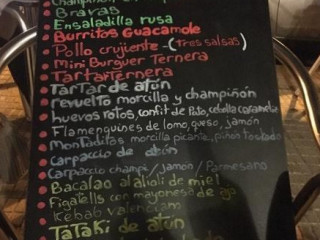 Champiñon
Bravas
Ensaladilla rusa
Burritos Guacamole
Pollo crujiente - (tres salsas)
Mini Burguer Ternera
Tartar ternera
Tartar de atún
revuelto morcilla y champiñón
huevos rotos, confit de Pato, cebolla caramele
Flamenquines de lomo, queso, jamón
Montaditos morcilla picante, piñon tostado
Carpaccio de atún
Carpaccio champi / jamón / Parmesano
Bacalao al alioli de miel
Figatells con mayonesa de
Kebab valenciam
Tataki de atún